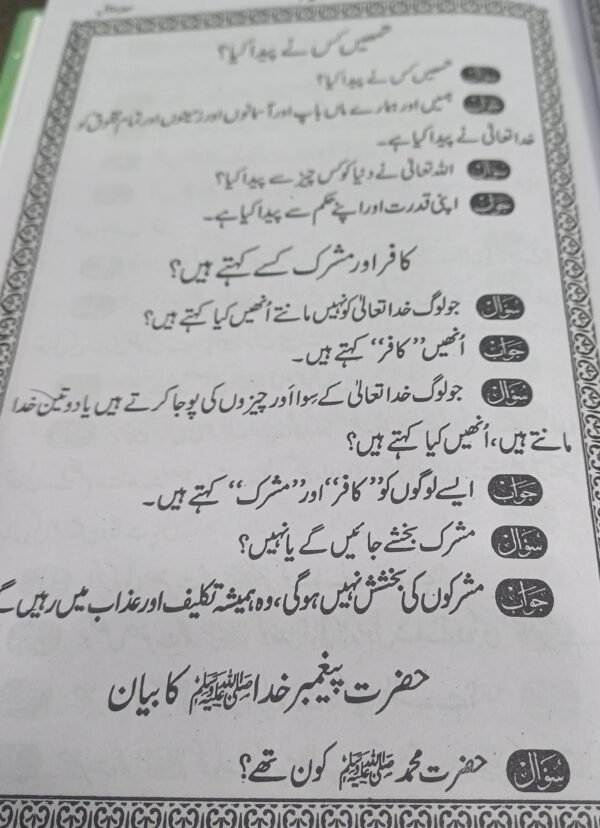 تمھیں کس نے پیدا کیا؟
سوال تمھیں کس نے پیدا کیا؟
جواب ہمیں اور ہمارے ماں باپ اور آسمانوں اور زمینوں اور تمام مخلوق کو
خدا تعالیٰ نے پیدا کیا ہے۔
سوال اللہ تعالیٰ نے دنیا کو کس چیز سے پیدا کیا؟
جواب اپنی قدرت اور اپنے حکم سے پیدا کیا ہے۔
کافر اور مشرک کسے کہتے ہیں؟
سوال جو لوگ خدا تعالیٰ کو نہیں مانتے اُنھیں کیا کہتے ہیں؟
جواب اُنھیں ”کافر“ کہتے ہیں۔
سوال جو لوگ خدا تعالیٰ کے سوا اور چیزوں کی پوجا کرتے ہیں یا دو تین خدا
مانتے ہیں، اُنھیں کیا کہتے ہیں؟
جواب ایسے لوگوں کو ”کافر“ اور ”مشرک“ کہتے ہیں۔
سوال مشرک بخشے جائیں گے یا نہیں؟
جواب مشرکوں کی بخشش نہیں ہوگی، وہ ہمیشہ تکلیف اور عذاب میں رہیں گے
حضرت پیغمبر خدا ﷺ کا بیان
سوال حضرت محمد ﷺ کون تھے؟